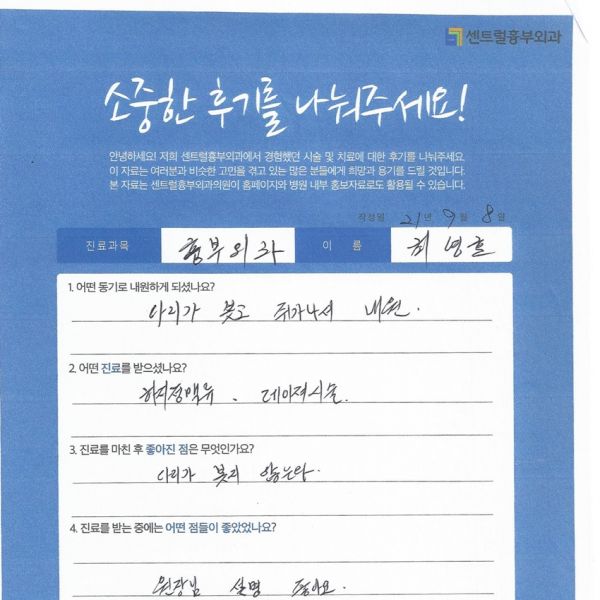 센트럴흉부외과
소중한 후기를 나눠주세요!
안녕하세요! 저희 센트럴흉부외과에서 경험했던 시술 및 치료에 대한 후기를 나눠주세요.
이 자료는 여러분과 비슷한 고민을 겪고 있는 많은 분들에게 희망과 용기를 드릴 것입니다.
본 자료는 센트럴흉부외과의원이 홈페이지와 병원 내부 홍보자료로도 활용될 수 있습니다.
작성일 21년 9월 8일
진료과목 흉부외과 이 름 최영호
1. 어떤 동기로 내원하게 되셨나요?
다리가 붓고 쥐가나서 내원.
2. 어떤 진료를 받으셨나요?
하지정맥류. 레이저시술.
3. 진료를 마친 후 좋아진 점은 무엇인가요?
다리가 붓지 않는다.
4. 진료를 받는 중에는 어떤 점들이 좋았었나요?
원장님 설명 좋아요.